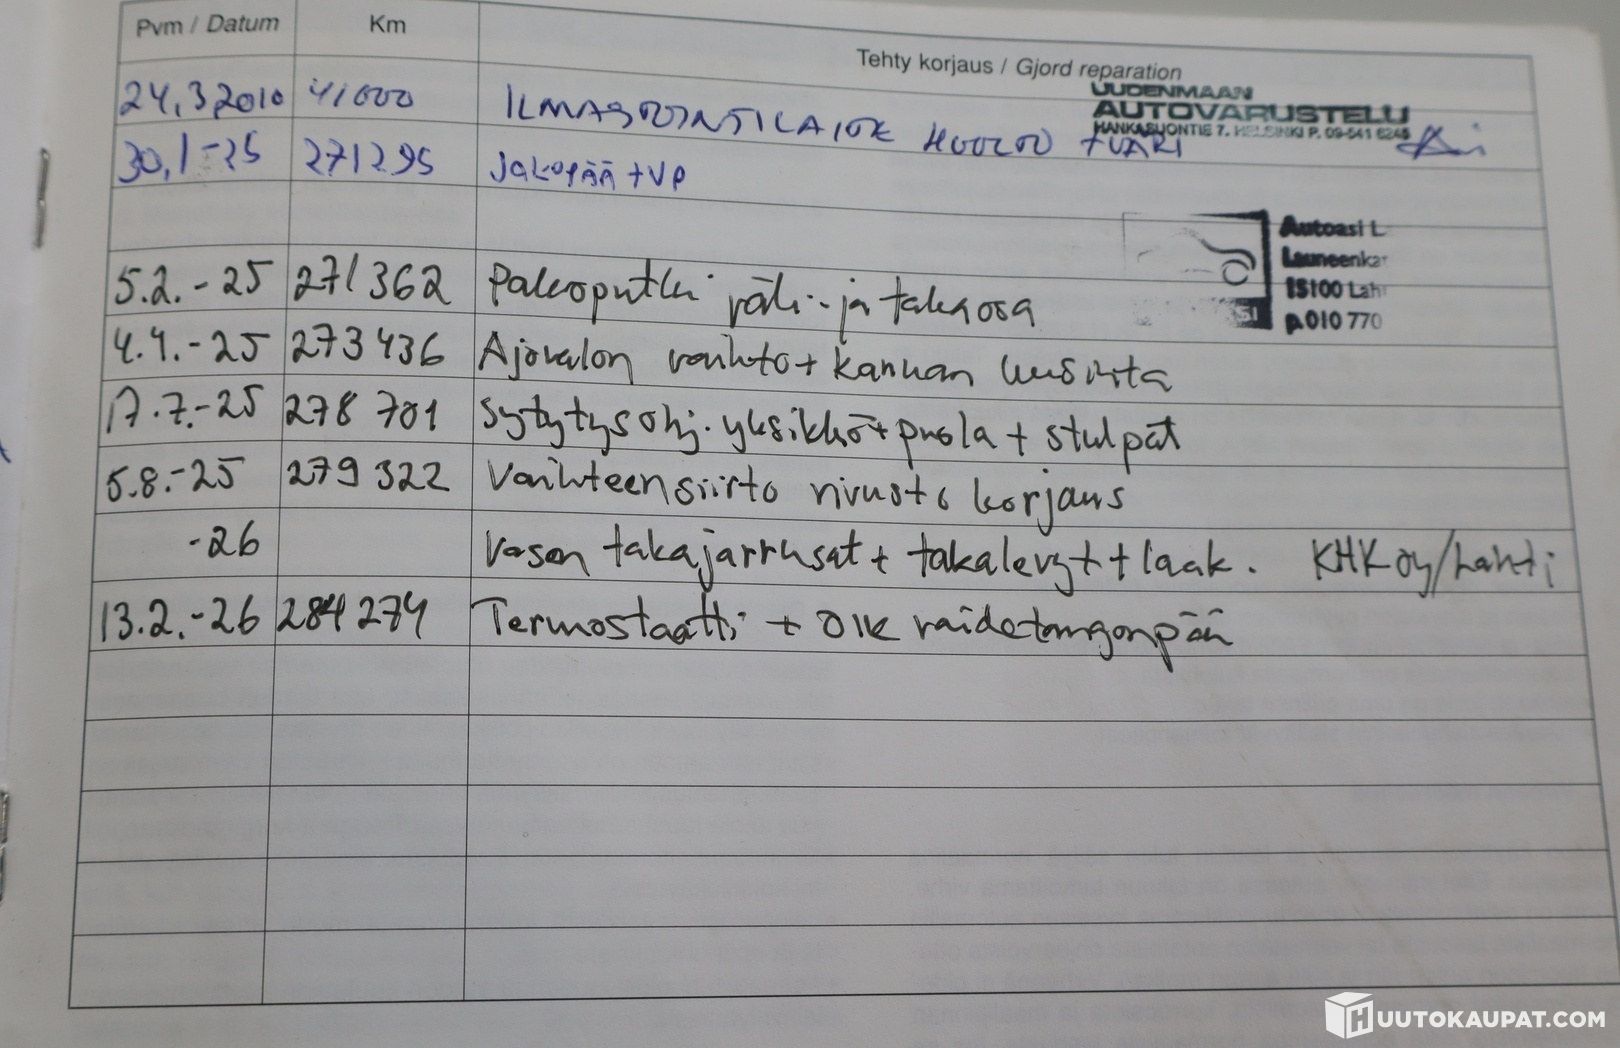 Pvm / Datum Km Tehty korjaus / Gjord reparation
UUDENMAAN
AUTOVARUSTELU
HANKASUONTIE 7. HELSINKI P. 09-541 6245
24.3.2010 41000 ILMASTOINTILAITE HUOLTO + VÄRI
30.1-25 271295 Jakopää + VP
Autoasi L
Launeenkat
15100 Lah
p.010 770
5.2.-25 271 362 Pakoputki väli- ja takaosa
4.4.-25 273 436 Ajovalon vaihto + kannan uusinta
17.7.-25 278 701 Sytytysohj. yksikkö + puola + stulpat
5.8.-25 279 322 Vaihteensiirto vivusto korjaus
-26 Vasen takajarrusat + takalevyt + laak. KHK oy/Lahti
13.2.-26 284 274 Termostaatti + OIK raidetangonpää
HUUTOKAUPAT.COM